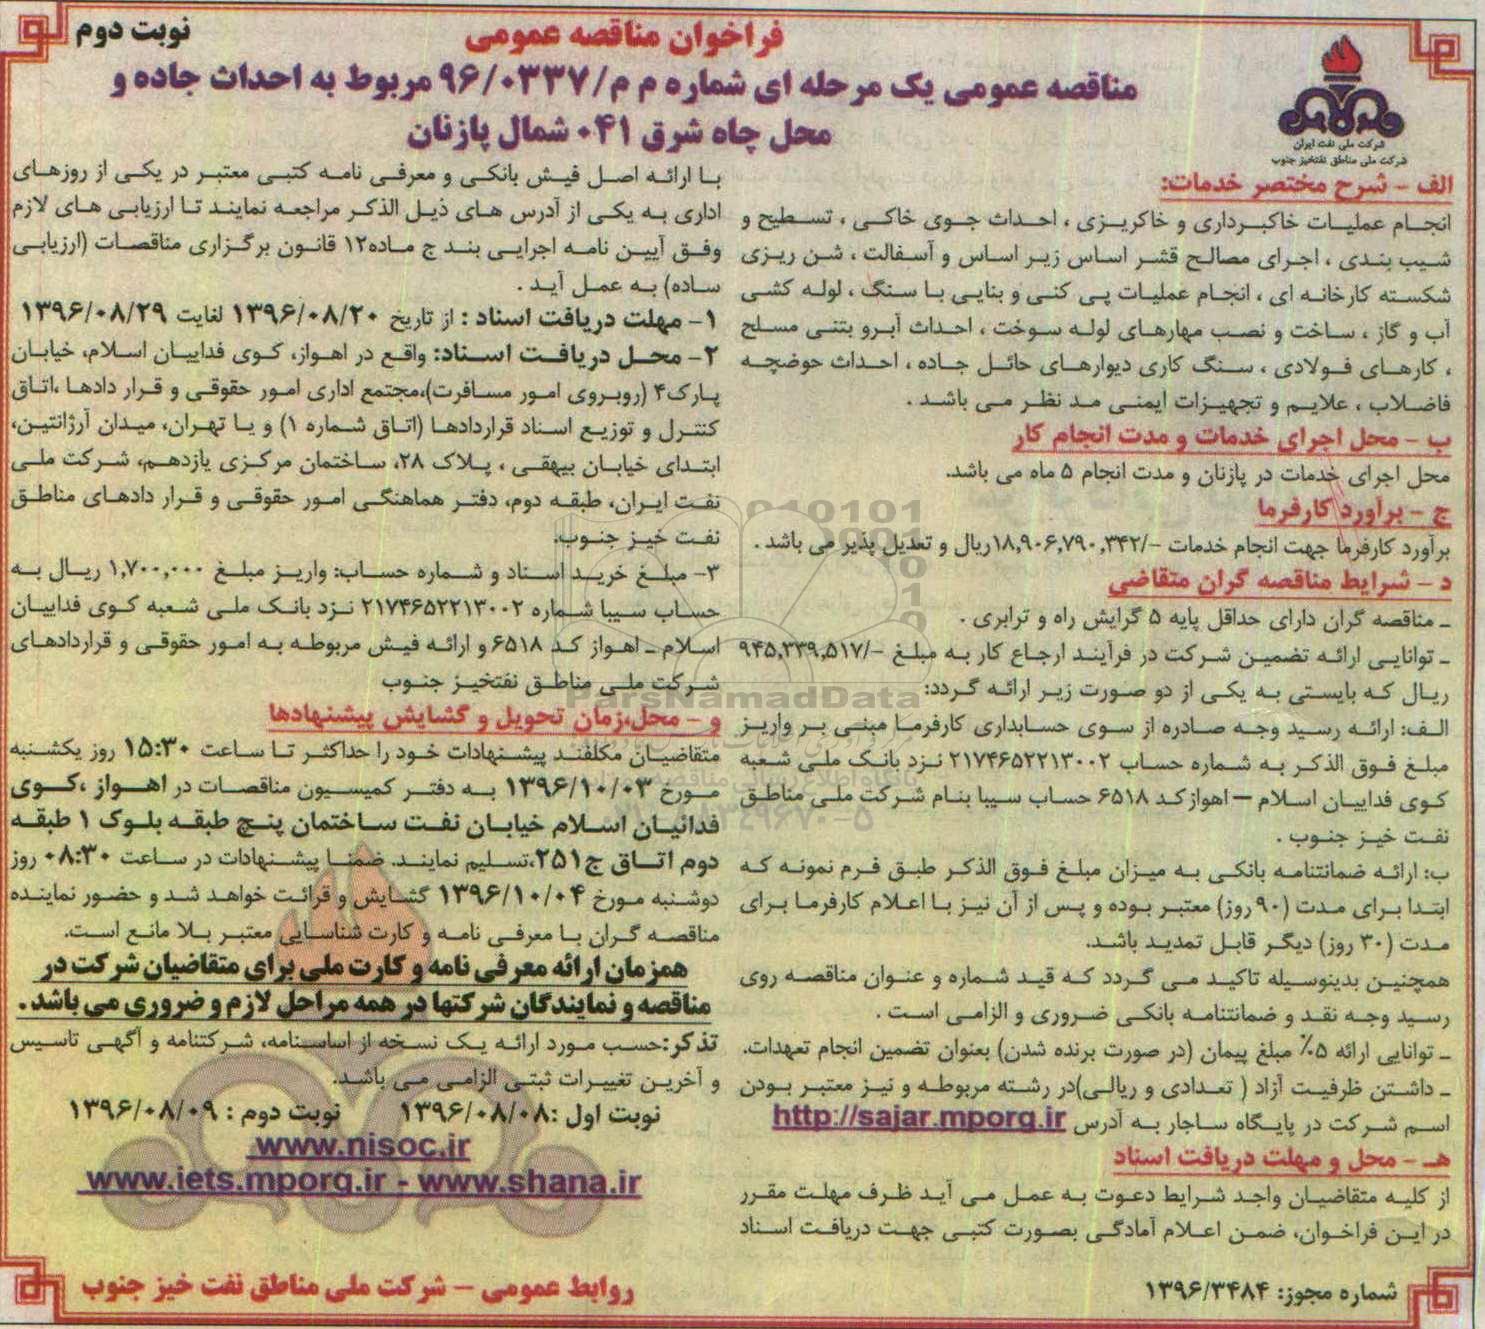 نوبت دوم
فراخوان مناقصه عمومی
مناقصه عمومی یک مرحله ای شماره م م/۹۶/۰۳۳۷ مربوط به احداث جاده و
محل چاه شرق ۰۴۱ شمال پازنان
شرکت ملی نفت ایران
شرکت ملی مناطق نفتخیز جنوب
الف - شرح مختصر خدمات:
انجام عملیات خاکبرداری و خاکریزی ، احداث جوی خاکی ، تسطیح و
شیب بندی ، اجرای مصالح قشر اساس زیر اساس و آسفالت ، شن ریزی
شکسته کارخانه ای ، انجام عملیات پی کنی و بنایی با سنگ ، لوله کشی
آب و گاز ، ساخت و نصب مهارهای لوله سوخت ، احداث آبرو بتنی مسلح
، کارهای فولادی ، سنگ کاری دیوارهای حائل جاده ، احداث حوضچه
فاضلاب ، علایم و تجهیزات ایمنی مد نظر می باشد .
ب - محل اجرای خدمات و مدت انجام کار
محل اجرای خدمات در پازنان و مدت انجام ۵ ماه می باشد.
ج - برآورد کارفرما
برآورد کارفرما جهت انجام خدمات -/۱۸,۹۰۶,۷۹۰,۳۴۲ریال و تعدیل پذیر می باشد .
د - شرایط مناقصه گران متقاضی
ـ مناقصه گران دارای حداقل پایه ۵ گرایش راه و ترابری .
ـ توانایی ارائه تضمین شرکت در فرآیند ارجاع کار به مبلغ -/۹۴۵,۳۳۹,۵۱۷
ریال که بایستی به یکی از دو صورت زیر ارائه گردد:
الف: ارائه رسید وجه صادره از سوی حسابداری کارفرما مبنی بر واریز
مبلغ فوق الذکر به شماره حساب ۲۱۷۴۶۵۲۲۱۳۰۰۲ نزد بانک ملی شعبه
کوی فداییان اسلام – اهوازکد ۶۵۱۸ حساب سیبا بنام شرکت ملی مناطق
نفت خیز جنوب .
ب: ارائه ضمانتنامه بانکی به میزان مبلغ فوق الذکر طبق فرم نمونه که
ابتدا برای مدت (۹۰ روز) معتبر بوده و پس از آن نیز با اعلام کارفرما برای
مدت (۳۰ روز) دیگر قابل تمدید باشد.
همچنین بدینوسیله تاکید می گردد که قید شماره و عنوان مناقصه روی
رسید وجه نقد و ضمانتنامه بانکی ضروری و الزامی است .
ـ توانایی ارائه ۵٪ مبلغ پیمان (در صورت برنده شدن) بعنوان تضمین انجام تعهدات.
ـ داشتن ظرفیت آزاد ( تعدادی و ریالی)در رشته مربوطه و نیز معتبر بودن
اسم شرکت در پایگاه ساجار به آدرس http://sajar.mporg.ir
هـ - محل و مهلت دریافت اسناد
از کلیه متقاضیان واجد شرایط دعوت به عمل می آید ظرف مهلت مقرر
در این فراخوان، ضمن اعلام آمادگی بصورت کتبی جهت دریافت اسناد
شماره مجوز: ۱۳۹۶/۳۴۸۴
با ارائه اصل فیش بانکی و معرفی نامه کتبی معتبر در یکی از روزهای
اداری به یکی از آدرس های ذیل الذکر مراجعه نمایند تا ارزیابی های لازم
وفق آیین نامه اجرایی بند ج ماده۱۲ قانون برگزاری مناقصات (ارزیابی
ساده) به عمل آید .
۱- مهلت دریافت اسناد : از تاریخ ۱۳۹۶/۰۸/۲۰ لغایت ۱۳۹۶/۰۸/۲۹
۲- محل دریافت اسناد: واقع در اهواز، کوی فداییان اسلام، خیابان
پارک۴ (روبروی امور مسافرت)،مجتمع اداری امور حقوقی و قرار دادها ،اتاق
کنترل و توزیع اسناد قراردادها (اتاق شماره ۱) و یا تهران، میدان آرژانتین،
ابتدای خیابان بیهقی ، پلاک ۲۸، ساختمان مرکزی یازدهم، شرکت ملی
نفت ایران، طبقه دوم، دفتر هماهنگی امور حقوقی و قرار دادهای مناطق
نفت خیز جنوب.
۳- مبلغ خرید اسناد و شماره حساب: واریز مبلغ ۱,۷۰۰,۰۰۰ ریال به
حساب سیبا شماره ۲۱۷۴۶۵۲۲۱۳۰۰۲ نزد بانک ملی شعبه کوی فداییان
اسلام ـ اهواز کد ۶۵۱۸ و ارائه فیش مربوطه به امور حقوقی و قراردادهای
شرکت ملی مناطق نفتخیز جنوب
و - محل،زمان تحویل و گشایش پیشنهادها
متقاضیان مکلفند پیشنهادات خود را حداکثر تا ساعت ۱۵:۳۰ روز یکشنبه
مورخ ۱۳۹۶/۱۰/۰۳ به دفتر کمیسیون مناقصات در اهواز ،کوی
فدائیان اسلام خیابان نفت ساختمان پنج طبقه بلوک ۱ طبقه
دوم اتاق ج۲۵۱،تسلیم نمایند. ضمنا پیشنهادات در ساعت ۰۸:۳۰ روز
دوشنبه مورخ ۱۳۹۶/۱۰/۰۴ گشایش و قرائت خواهد شد و حضور نماینده
مناقصه گران با معرفی نامه و کارت شناسایی معتبر بلا مانع است.
همزمان ارائه معرفی نامه و کارت ملی برای متقاضیان شرکت در
مناقصه و نمایندگان شرکتها در همه مراحل لازم و ضروری می باشد .
تذکر:حسب مورد ارائه یک نسخه از اساسنامه، شرکتنامه و آگهی تاسیس
و آخرین تغییرات ثبتی الزامی می باشد.
نوبت اول :۱۳۹۶/۰۸/۰۸ نوبت دوم : ۱۳۹۶/۰۸/۰۹
www.nisoc.ir
www.iets.mporg.ir - www.shana.ir
روابط عمومی - شرکت ملی مناطق نفت خیز جنوب
ParsNamadData